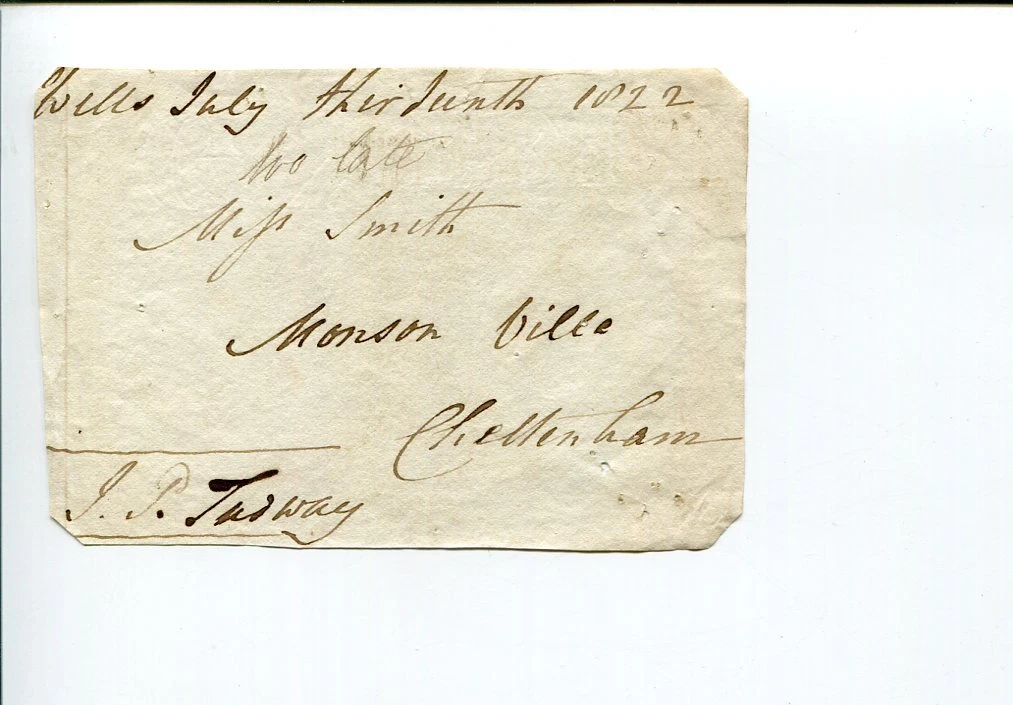 Wells July thirteenth 1822
too late
Miss Smith
Monson Villa
Cheltenham
J. P. Tudway